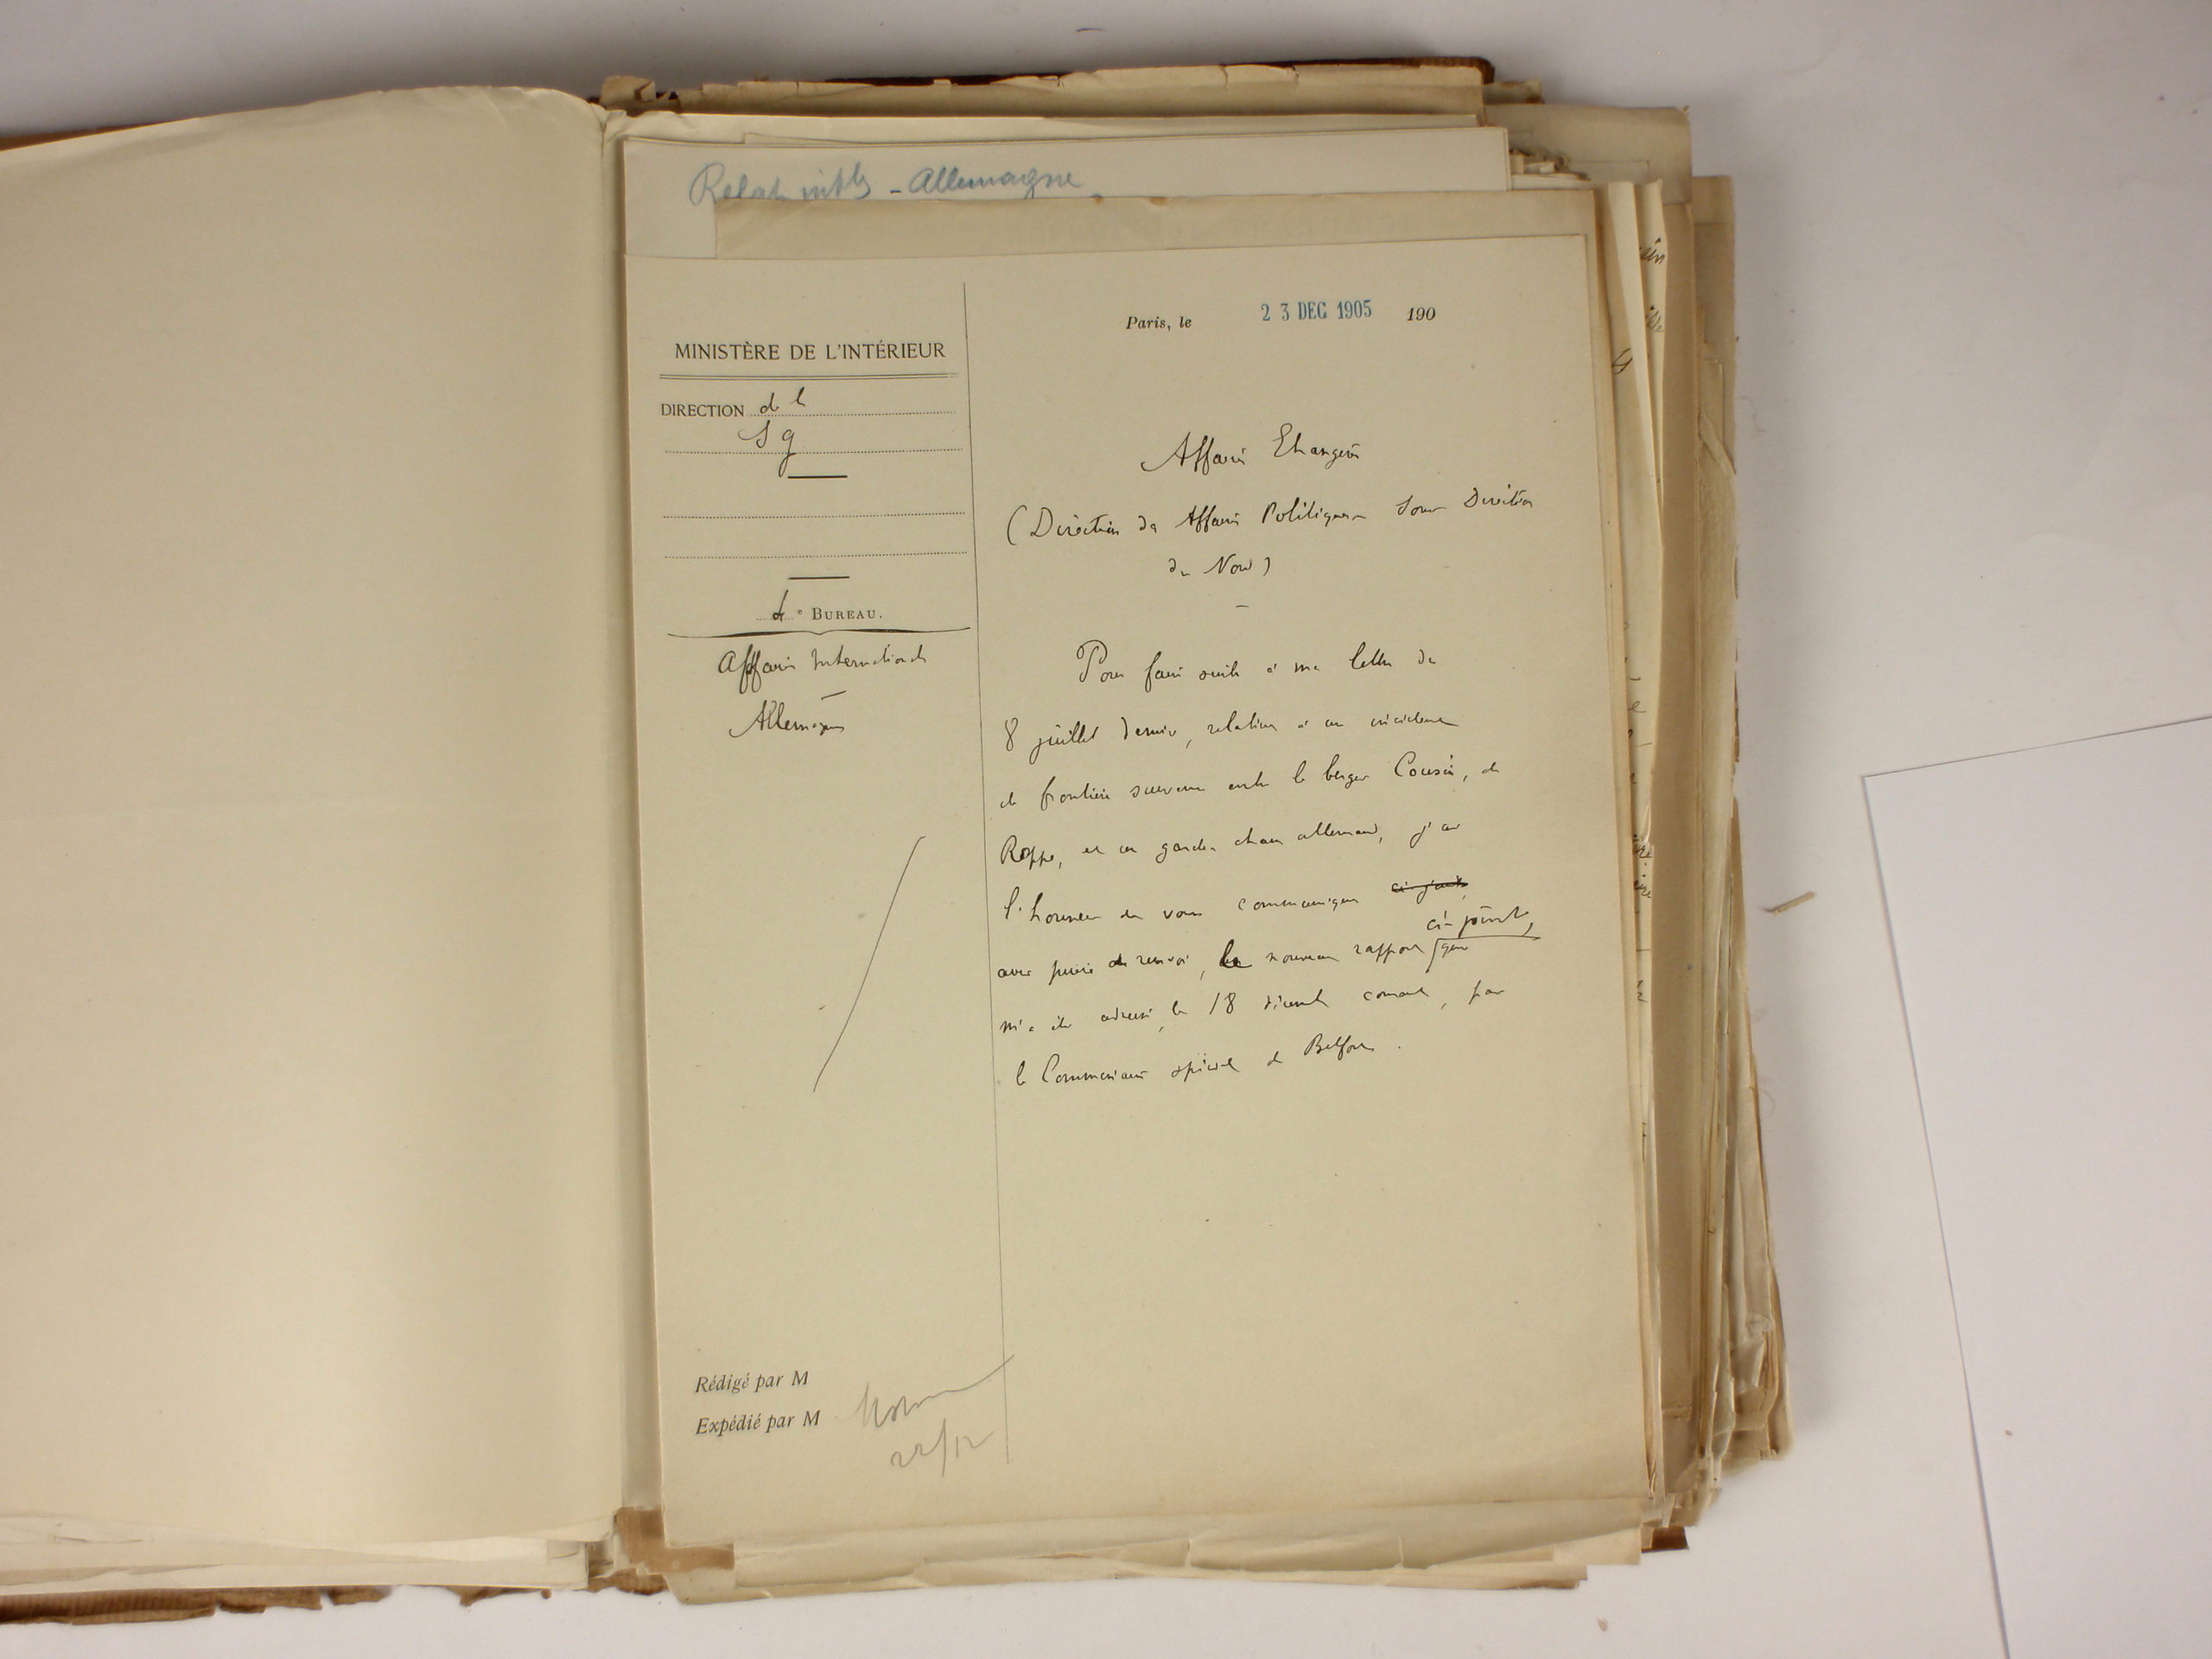 Relat intles - Allemagne
Paris, le 23 DEC 1905 190
MINISTÈRE DE L'INTÉRIEUR
DIRECTION de la
S g
4e BUREAU.
Affaires Internationales
Allemagne
Affaires Etrangères
(Direction des Affaires Politiques - Sous Direction
du Nord)
Pour faire suite à ma lettre du
8 juillet dernier, relative à un incident
de frontière survenu entre le berger Cousin, de
Roppe, et un garde chasse allemand, j'ai
l'honneur de vous communiquer ci-joint,
ci-joint,
avec prière de renvoi, le nouveau rapport qui
m'a été adressé, le 18 décembre courant, par
le Commissaire spécial de Belfort.
Rédigé par M
Expédié par M
22/12